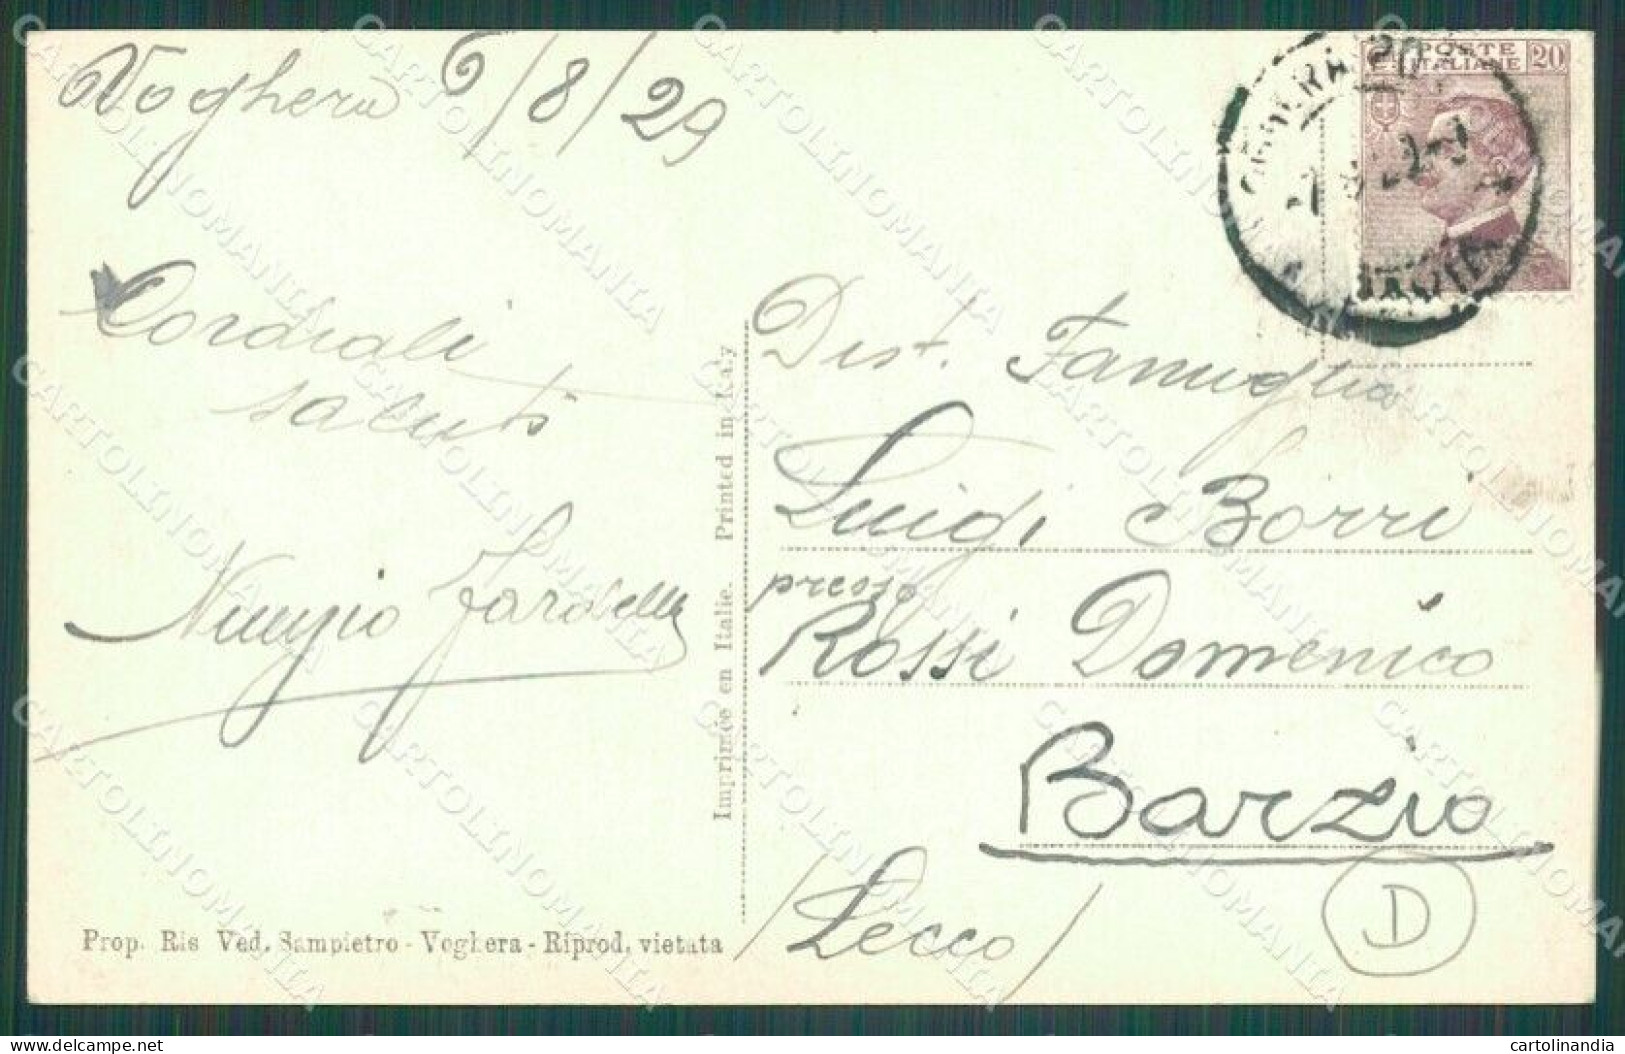 Voghera 6/8/29
Cordiali
saluti
POSTE
ITALIANE
20
Dist. Famiglia
Luigi Borri
presso
Rossi Domenico
Barzio
/Lecco/
D
Imprimée en Italie. Printed in Italy
Prop. Ris Ved. Sampietro - Voghera - Riprod. vietata
CARTOLINOMANIA
delcampe.net
cartolinandia